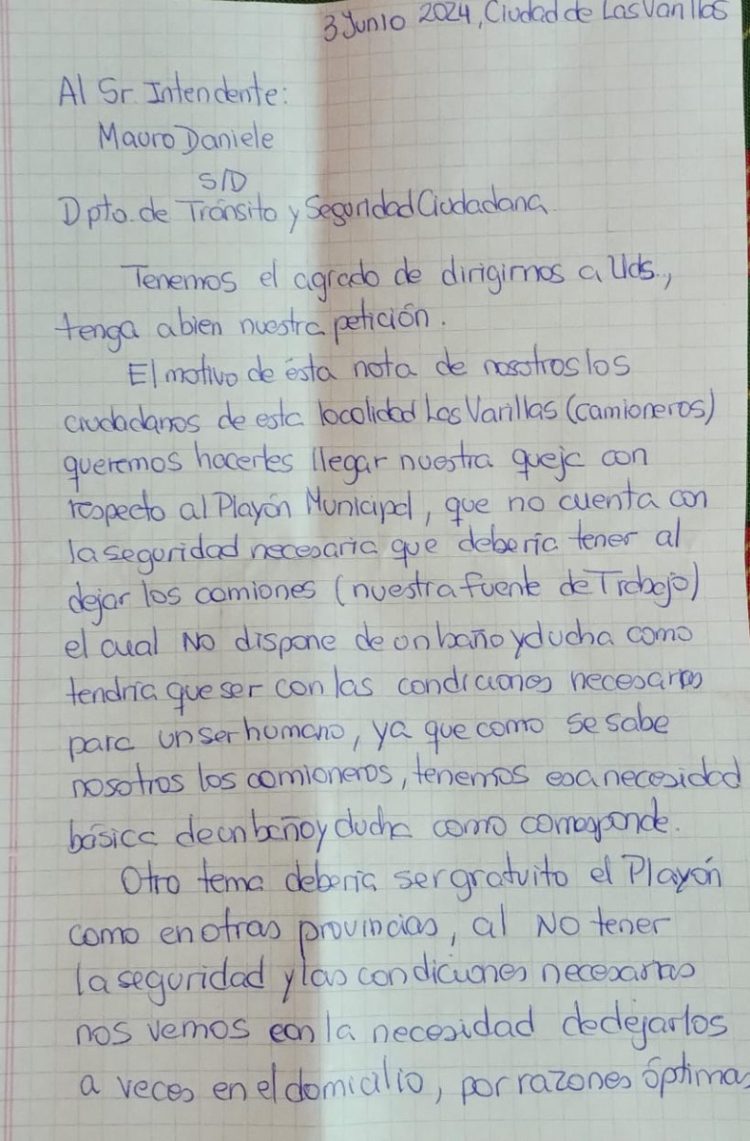 3 Junio 2024, Ciudad de Las Varillas
Al Sr. Intendente:
Mauro Daniele
S/D
Dpto. de Tránsito y Seguridad Ciudadana
Tenemos el agrado de dirigirnos a Uds.,
tenga a bien nuestra petición.
El motivo de ésta nota de nosotros los
ciudadanos de esta localidad Las Varillas (camioneros)
queremos hacerles llegar nuestra queja con
respecto al Playón Municipal, que no cuenta con
la seguridad necesaria que debería tener al
dejar los camiones (nuestra fuente de Trabajo)
el cual NO dispone de un baño y ducha como
tendría que ser con las condiciones necesarias
para un ser humano, ya que como se sabe
nosotros los camioneros, tenemos esa necesidad
básica de un baño y ducha como corresponde.
Otro tema debería ser gratuito el Playón
como en otras provincias, al NO tener
la seguridad y las condiciones necesarias
nos vemos con la necesidad de dejarlos
a veces en el domicilio, por razones óptimas